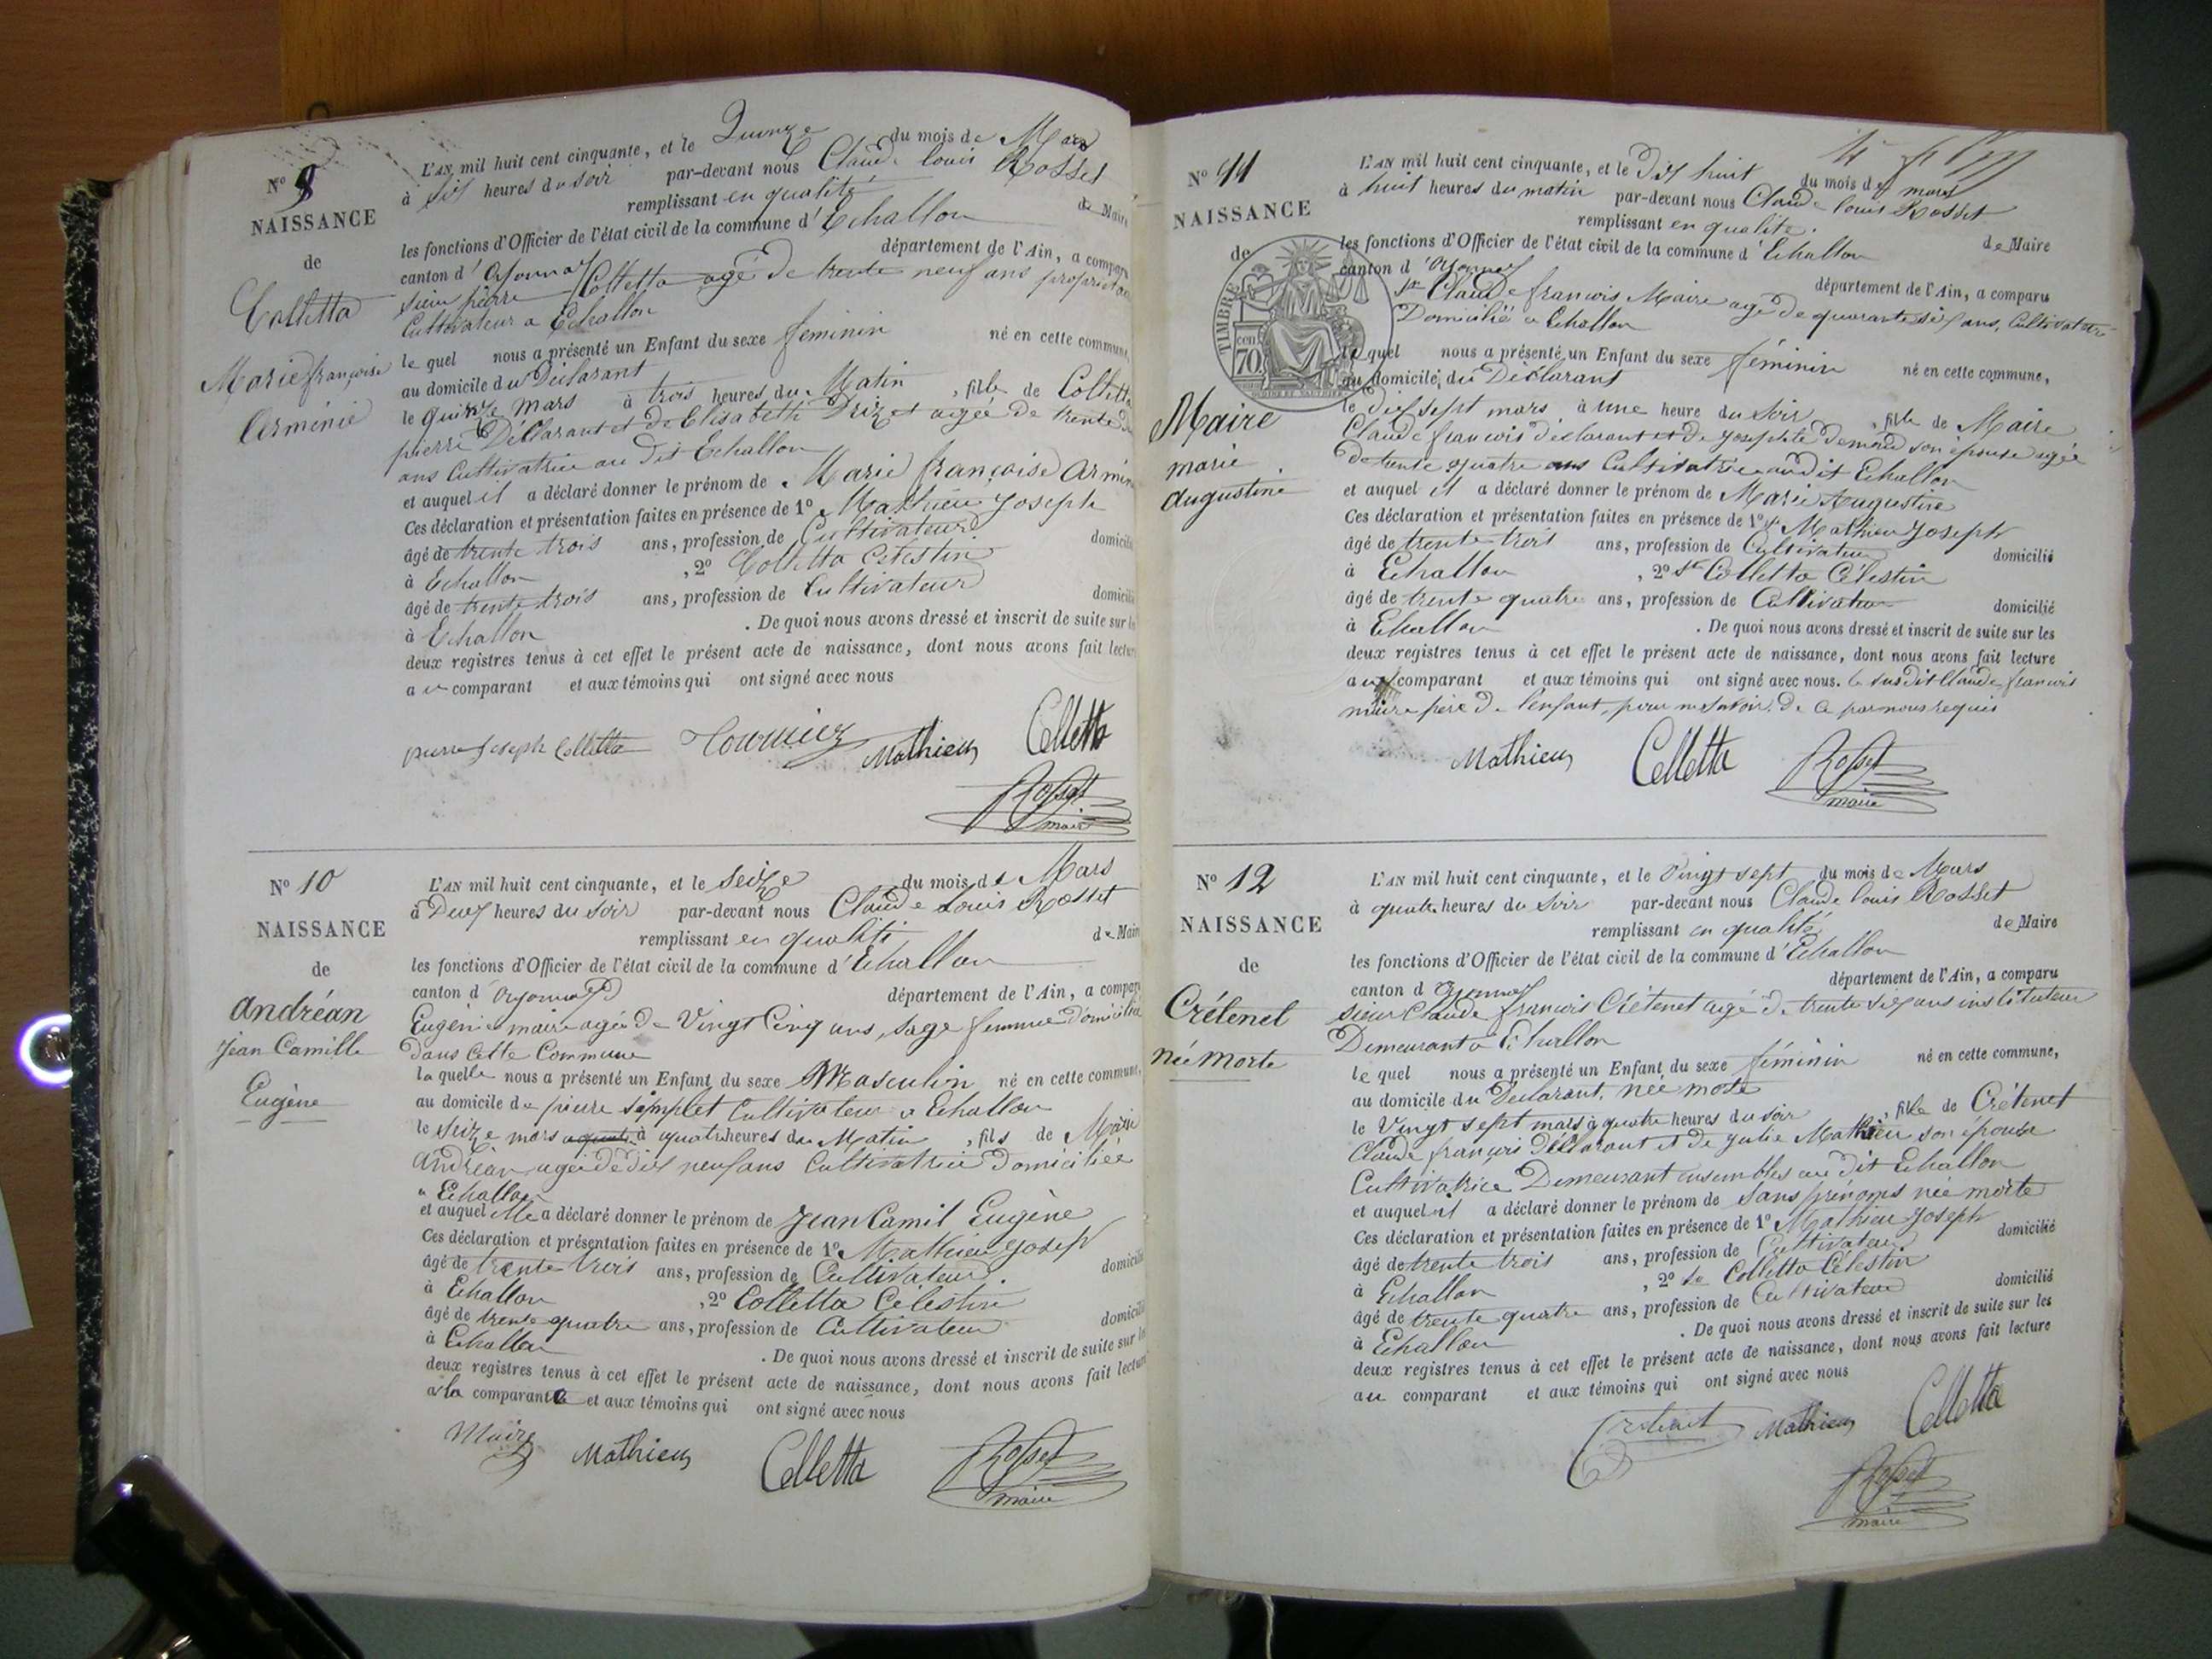 N° 9
NAISSANCE
de
Colletta
Marie françoise
Arménie
L'AN mil huit cent cinquante, et le Quinze du mois de Mars
à six heures du soir par-devant nous Claude louis Rosset
remplissant en qualité de Maire
les fonctions d'Officier de l'état civil de la commune d'Echallon
canton d'Oyonnax département de l'Ain, a comparu
sieur pierre Colletta agé de trente neuf ans propriétaire
Cultivateur a Echallon
le quel nous a présenté un Enfant du sexe feminin né en cette commune,
au domicile du Déclarant
le quinze mars à trois heures du Matin, fille de Colletta
pierre Déclarant et de Elisabeth agée de trente
ans Cultivatrice au dit Echallon
et auquel il a déclaré donner le prénom de Marie françoise Armén
Ces déclaration et présentation faites en présence de 1° Mathieu Joseph
âgé de trente trois ans, profession de Cultivateur domicilié
à Echallon, 2° Colletta Celestin
âgé de trente trois ans, profession de Cultivateur domicilié
à Echallon. De quoi nous avons dressé et inscrit de suite sur les
deux registres tenus à cet effet le présent acte de naissance, dont nous avons fait lecture
au comparant et aux témoins qui ont signé avec nous
pierre Joseph Colletta Tournier Mathieu Colletta
Rosset
maire
N° 10
NAISSANCE
de
Andréan
Jean Camille
Eugène
L'AN mil huit cent cinquante, et le seize du mois de Mars
à Deux heures du soir par-devant nous Claude Louis Rosset
remplissant en qualité de Maire
les fonctions d'Officier de l'état civil de la commune d'Echallon
canton d'Oyonnax département de l'Ain, a comparu
Eugénie maire agée de Vingt Cinq ans, sage femme domiciliée
dans cette Commune
la quelle nous a présenté un Enfant du sexe Masculin né en cette commune,
au domicile de pierre Simplet Cultivateur a Echallon
le seize mars à quatre heures du Matin, fils de Marie
Andréan agée de dix neuf ans Cultivatrice Domiciliée
a Echallon
et auquel elle a déclaré donner le prénom de Jean Camil Eugène
Ces déclaration et présentation faites en présence de 1° Mathieu Joseph
âgé de trente trois ans, profession de Cultivateur. domicilié
à Echallon, 2° Colletta Célestin
âgé de trente quatre ans, profession de Cultivateur domicilié
à Echallon. De quoi nous avons dressé et inscrit de suite sur les
deux registres tenus à cet effet le présent acte de naissance, dont nous avons fait lecture
a la comparante et aux témoins qui ont signé avec nous
Maire Mathieu Colletta Rosset
maire
N° 11
NAISSANCE
de
TIMBRE
cen
70
Maire
marie
augustine
L'AN mil huit cent cinquante, et le Dix huit du mois de mars
à huit heures du matin par-devant nous Claude louis Rosset
remplissant en qualité de Maire
les fonctions d'Officier de l'état civil de la commune d'Echallon
canton d'Oyonnax département de l'Ain, a comparu
sr Claude francois Maire agé de quarante six ans, Cultivateur
Domicilié a Echallon
le quel nous a présenté un Enfant du sexe féminin né en cette commune,
au domicile du Déclarant
le dix sept mars à une heure du soir, fille de Maire
Claude francois déclarant et de Josephte son épouse agée
de trente quatre ans Cultivatrice au dit Echallon
et auquel il a déclaré donner le prénom de Marie Augustine
Ces déclaration et présentation faites en présence de 1° sr Mathieu Joseph
âgé de trente trois ans, profession de Cultivateur domicilié
à Echallon, 2° sr Colletta Célestin
âgé de trente quatre ans, profession de Cultivateur domicilié
à Echallon. De quoi nous avons dressé et inscrit de suite sur les
deux registres tenus à cet effet le présent acte de naissance, dont nous avons fait lecture
au comparant et aux témoins qui ont signé avec nous. le susdit Claude francois
maire père de l'enfant, pour ne savoir de ce par nous requis
Mathieu Colletta Rosset
maire
N° 12
NAISSANCE
de
Crétenet
née morte
L'AN mil huit cent cinquante, et le Vingt sept du mois de Mars
à quatre heures du soir par-devant nous Claude louis Rosset
remplissant en qualité de Maire
les fonctions d'Officier de l'état civil de la commune d'Echallon
canton d'Oyonnax département de l'Ain, a comparu
sieur Claude françois Crétenet agé de trente six ans instituteur
Demeurant a Echallon
le quel nous a présenté un Enfant du sexe féminin né en cette commune,
au domicile du Déclarant, née morte
le Vingt sept mars à quatre heures du soir, fille de Crétenet
Claude françois Déclarant et de Julie Mathieu son épouse
Cultivatrice Demeurant ensembles au dit Echallon
et auquel il a déclaré donner le prénom de sans prénoms née morte
Ces déclaration et présentation faites en présence de 1° Mathieu Joseph
âgé de trente trois ans, profession de Cultivateur domicilié
à Echallon, 2° Colletta Célestin
âgé de trente quatre ans, profession de Cultivateur domicilié
à Echallon. De quoi nous avons dressé et inscrit de suite sur les
deux registres tenus à cet effet le présent acte de naissance, dont nous avons fait lecture
au comparant et aux témoins qui ont signé avec nous
Crétenet Mathieu Colletta
Rosset
maire